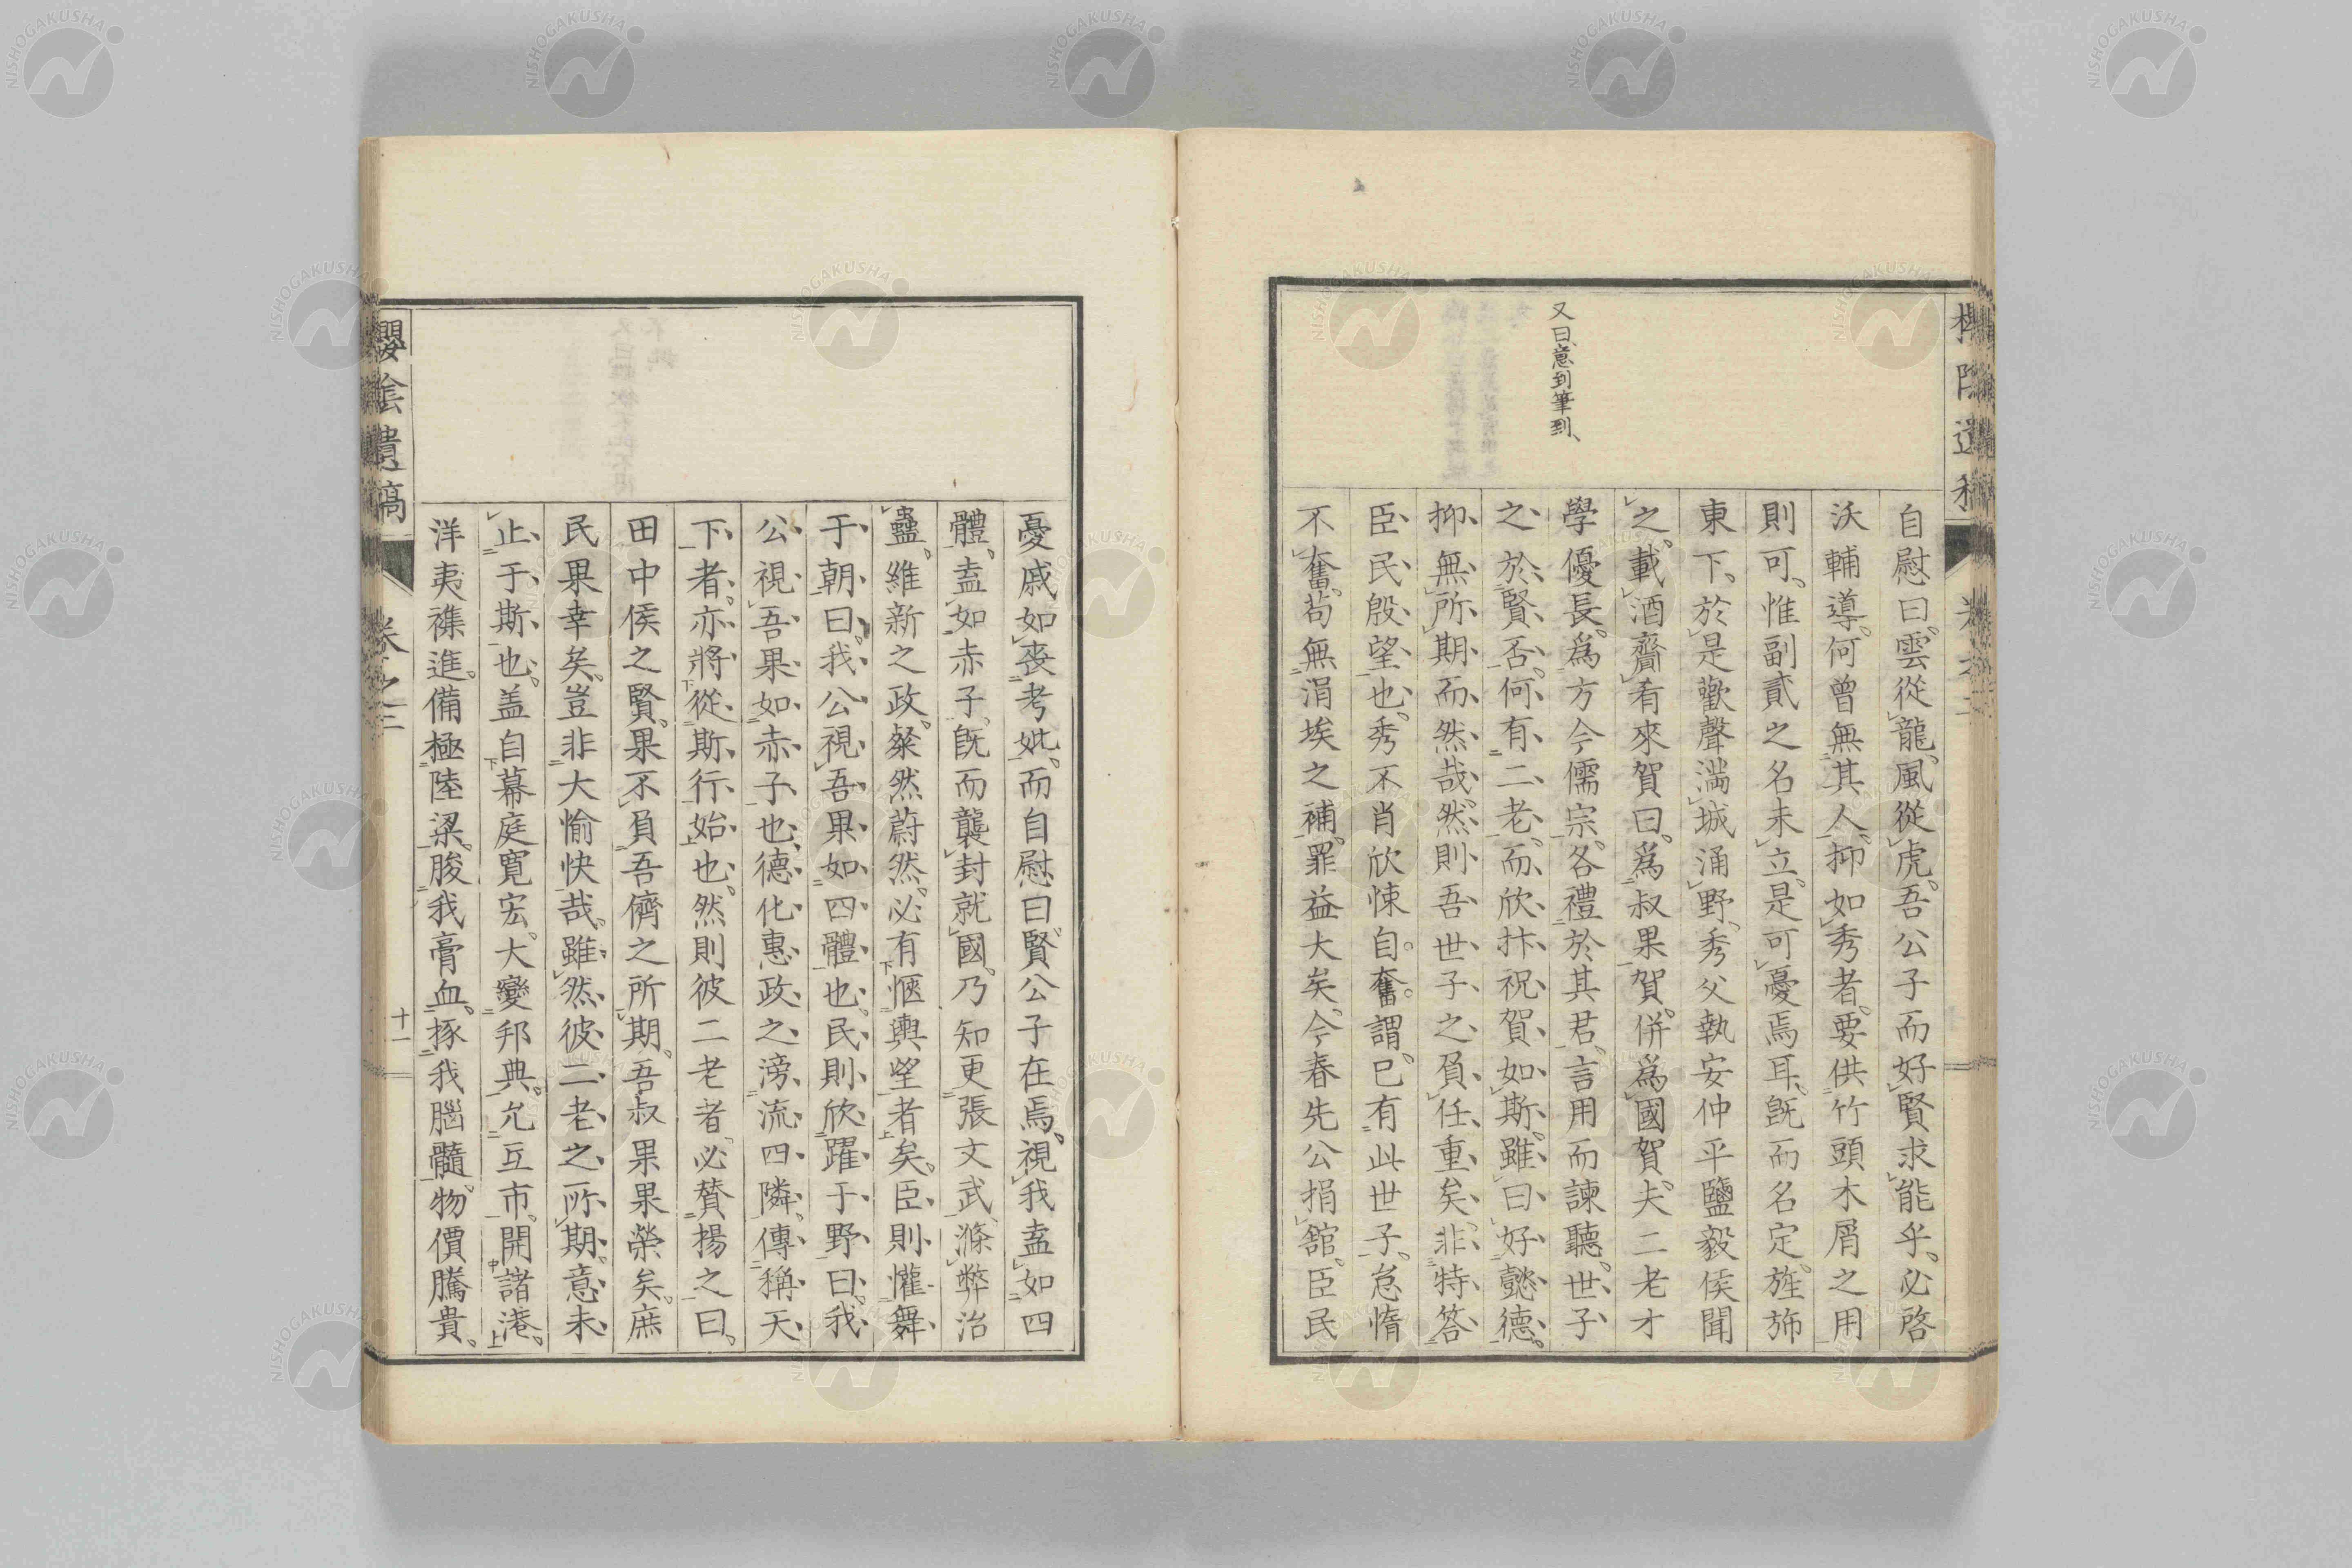 又曰、意到筆到、
自慰曰。雲從龍、風從虎。吾公子而好賢求能乎。必啓
沃輔導。何曾無其人。抑如秀者。要供竹頭木屑之用
則可。惟副貳之名未立。是可憂焉耳。既而名定。旌旆
東下。於是歡聲滿城涌野。秀父執安仲平鹽毅侯聞
之。載酒齎肴來賀曰。爲叔果賀。併爲國賀。夫二老才
學優長。爲方今儒宗。各禮於其君。言用而諫聽。世子
之於賢否。何有二老。而欣抃祝賀如斯。雖曰好懿德。
抑無所期而然哉。然則吾世子之負任重矣。非特答
臣民殷望也。秀不肖欣悚自奮。謂。已有此世子。怠惰
不奮。苟無涓埃之補。罪益大矣。今春先公捐館。臣民
憂戚如喪考妣。而自慰曰。賢公子在焉。視我盍如四
體。盍如赤子。既而襲封就國。乃知更張文武。滌弊治
蠱。維新之政。粲然蔚然。必有愜輿望者矣。臣則懽舞
于朝曰。我公視吾果如四體也。民則欣躍于野曰。我
公視吾果如赤子也。德化惠政之滂流四隣。傳稱天
下者。亦將從斯行始也。然則彼二老者。必贊揚之曰。
田中侯之賢。果不負吾儕之所期。吾叔果果榮矣。庶
民果幸矣。豈非大愉快哉。雖然彼二老之所期。意未
止于斯也。盖自幕庭寬宏。大變邦典。允互市。開諸港。
洋夷襍進。備極陸梁。朘我膏血。㧻我腦髓。物價騰貴。
櫻陰遺稿
卷之二
十一
NISHOGAKUSHA